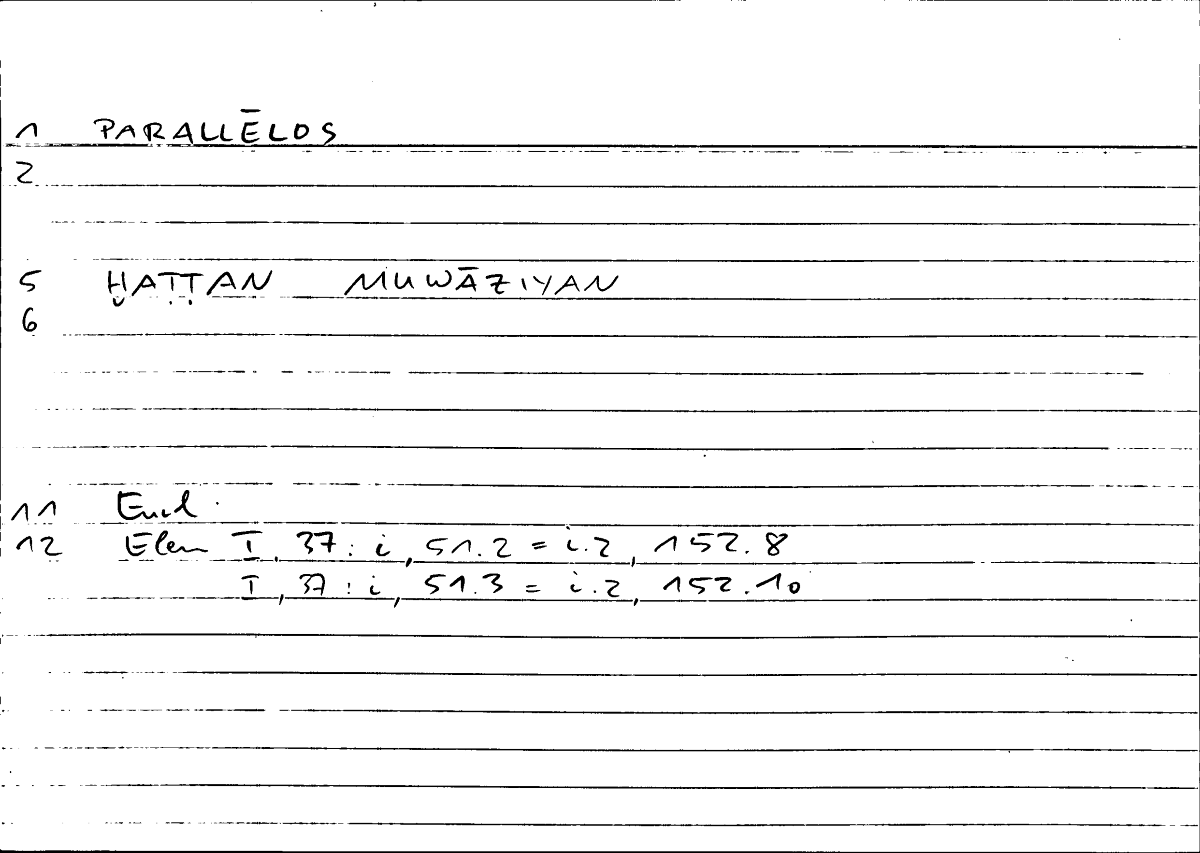 1 PARALLĒLOS
2
5 ḪAṬṬAN MUWĀZIYAN
6
11 Eucl.
12 Elem I, 37 : i, 51.2 = i.2, 152.8
I, 37 : i, 51.3 = i.2, 152.10